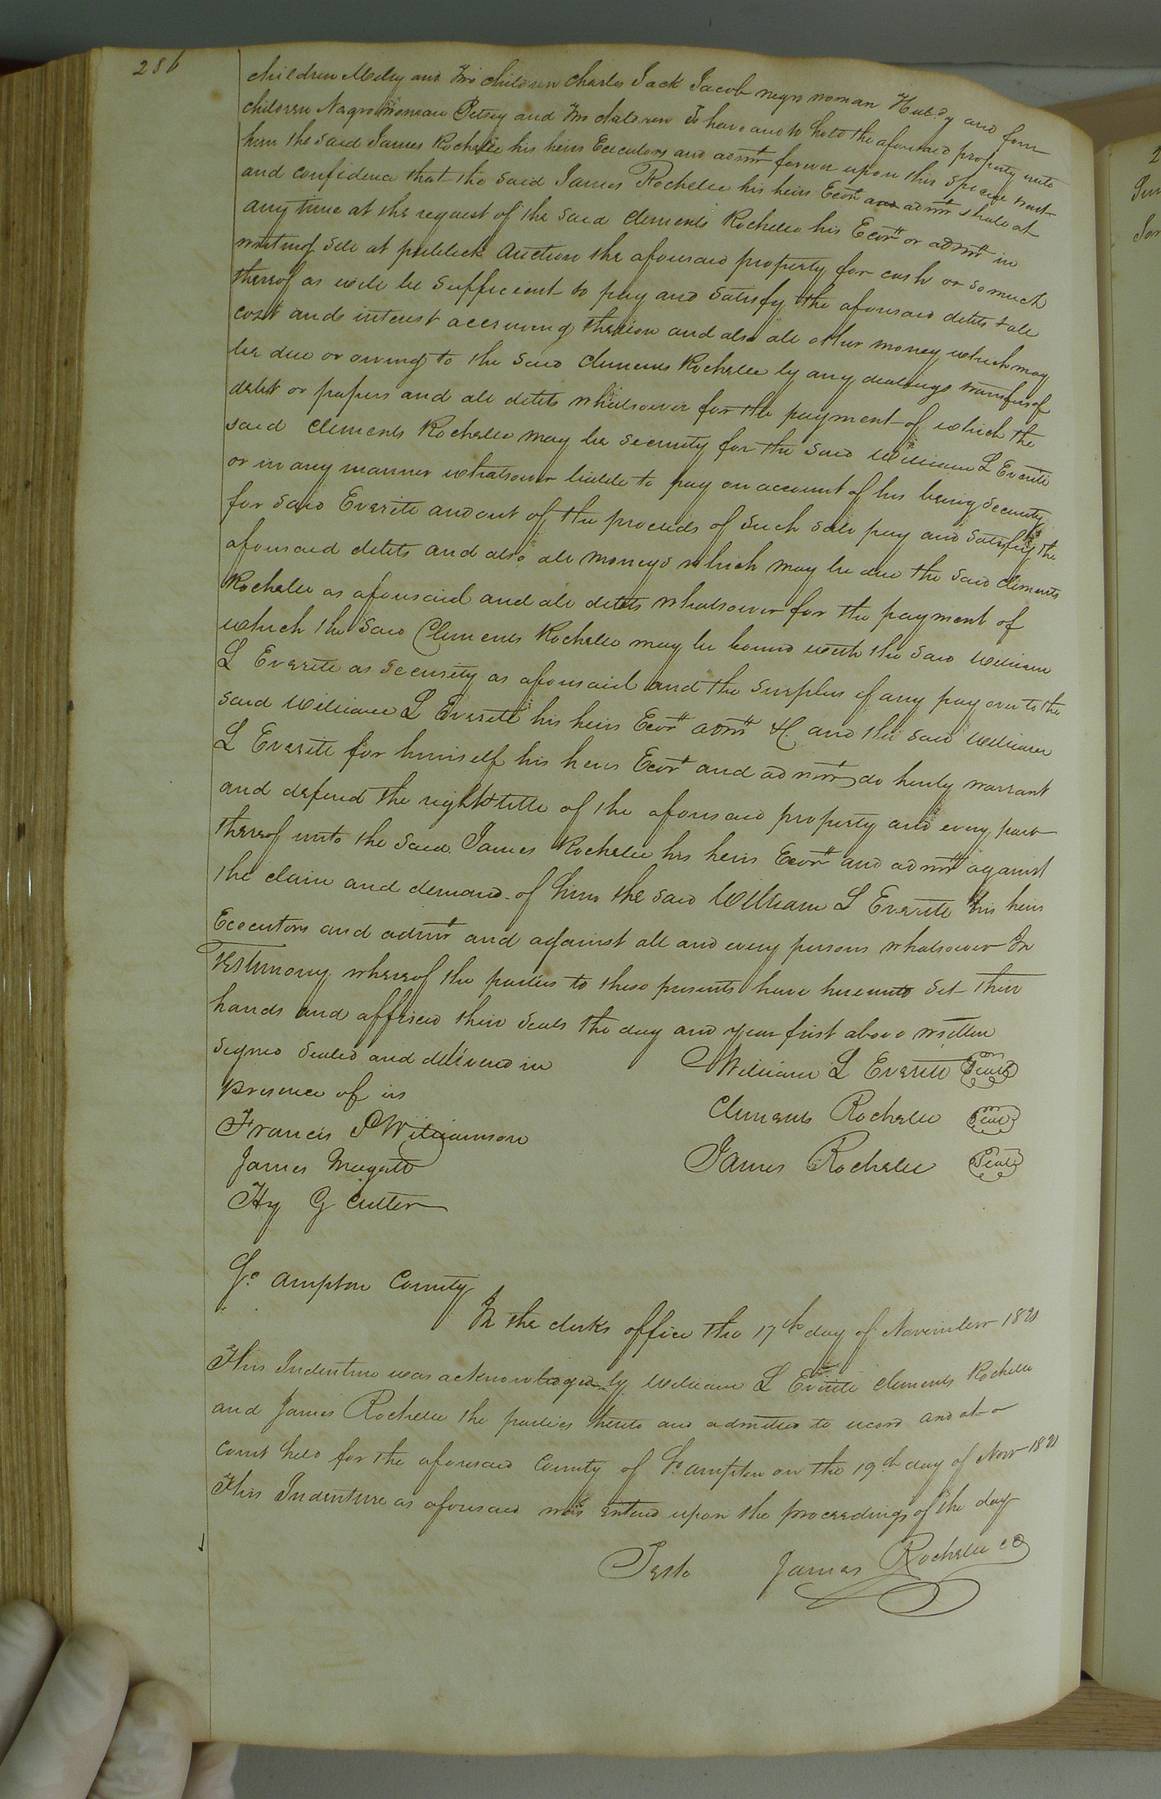 286
children Milly and two children Charles Jack Jacob negro woman Huldy and four
children Negro woman Betsey and two children To have and to hold the aforesaid property unto
him the said James Rochelle his heirs Executors and admrs forever upon this special trust
and confidence that the said James Rochelle his heirs Exors and admrs shall at
any time at the request of the said Clements Rochelle his Exors or admrs in
writing sell at publick Auction the aforesaid property for cash or so much
thereof as will be sufficient to pay and satisfy the aforesaid debts & all
cost and interest accruing thereon and also all other money which may
be due or owing to the said Clements Rochelle by any dealings transfers of
debt or papers and all debts whatsoever for the payment of which the
said Clements Rochelle may be security for the said William L Everitt
or in any manner whatsoever liable to pay on account of his being security
for said Everitt and out of the proceeds of such sale pay and satisfy the
aforesaid debts and also all moneys which may be due the said Clements
Rochelle as aforesaid and all debts whatsoever for the payment of
which the said Clements Rochelle may be bound with the said William
L Everitt as security as aforesaid and the surplus if any pay over to the
said William L Everitt his heirs Exors admrs &C and the said William
L Everitt for himself his heirs Exors and admrs do hereby warrant
and defend the right & title of the aforesaid property and every part
thereof unto the said James Rochelle his heirs Exors and admrs against
the claim and demand of him the said William L Everitt his heirs
Executors and admrs and against all and every persons whatsoever In
Testimony whereof the parties to these presents have hereunto set their
hands and affixed their seals the day and year first above written
Signed Sealed and delivered in
presence of us
William L Everitt Seal
Francis P Williamson
Clements Rochelle Seal
James Rochelle Seal
James
Hy G Cutler
So ampton County
In the clerks office the 17th day of November 1821
This Indenture was acknowledged by William L Everitt Clements Rochelle
and James Rochelle the parties thereto and admitted to record and at a
Court held for the aforesaid County of So ampton on the 19th day of Novr 1821
This Indenture as aforesaid was entered upon the proceedings of the day
Teste James Rochelle CC